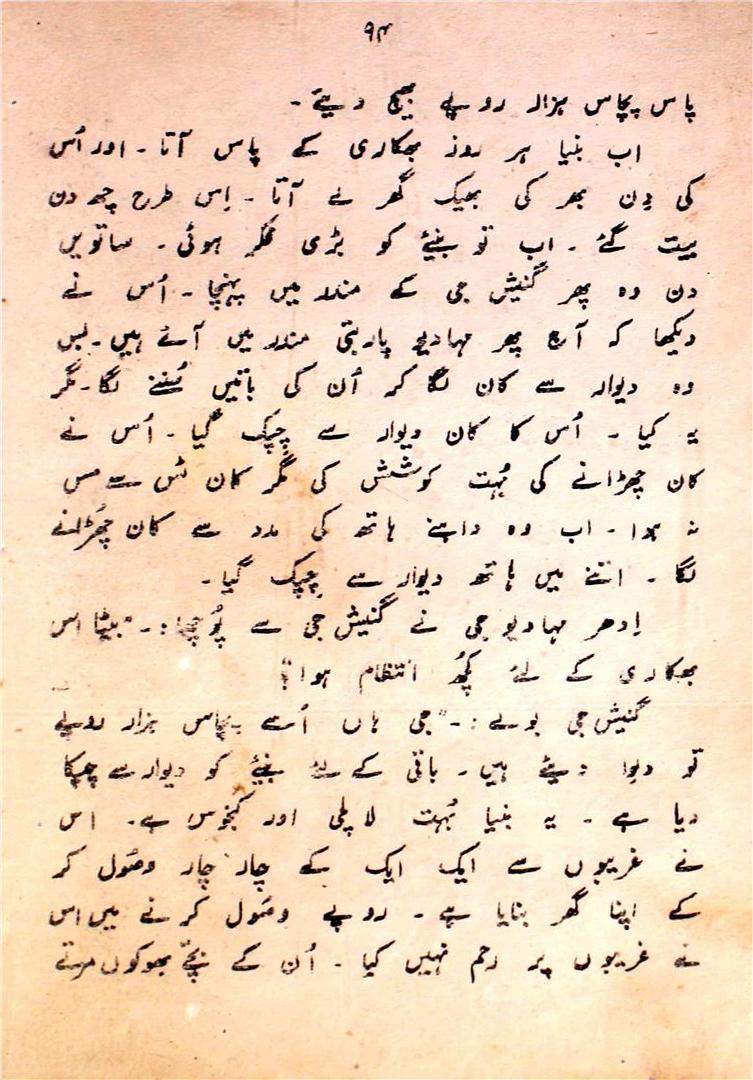 ۹۴
پاس پچاس ہزار روپے بھیج دیئے۔
اب بنیا ہر روز بھکاری کے پاس آتا۔ اور اُس
کی دِن بھر کی بھیک گھر لے آتا۔ اِس طرح چھ دن
بیت گئے۔ اب تو بنیئے کو بڑی فکر ہوئی۔ ساتویں
دن وہ پھر گنیش جی کے مندر میں پہنچا۔ اُس نے
دیکھا کہ آج پھر مہادیو پاربتی مندر میں آئے ہیں۔ بس
وہ دیوار سے کان لگا کر اُن کی باتیں سُننے لگا۔ مگر
یہ کیا۔ اُس کا کان دیوار سے چپک گیا۔ اُس نے
کان چھڑانے کی بُہت کوشش کی مگر کان ٹس سے مس
نہ ہوا۔ اب وہ داہنے ہاتھ کی مدد سے کان چھُڑانے
لگا۔ اتنے میں ہاتھ دیوار سے چپک گیا۔
اِدھر مہادیو جی نے گنیش جی سے پُوچھا:۔ "بیٹا اس
بھکاری کے لئے کچُھ انتظام ہوا؟"
گنیش جی بولے:۔ "جی ہاں اُسے پچاس ہزار روپے
تو دِلوا دیئے ہیں۔ باقی کے لئے بنیئے کو دیوار سے چپکا
دیا ہے۔ یہ بنیا بُہت لالچی اور کنجوس ہے۔ اس
نے غریبوں سے ایک ایک کے چار چار وصُول کر
کے اپنا گھر بنایا ہے۔ روپے وصُول کرنے میں اس
نے غریبوں پر رحم نہیں کیا۔ اُن کے بچّے بھوکوں مرتے